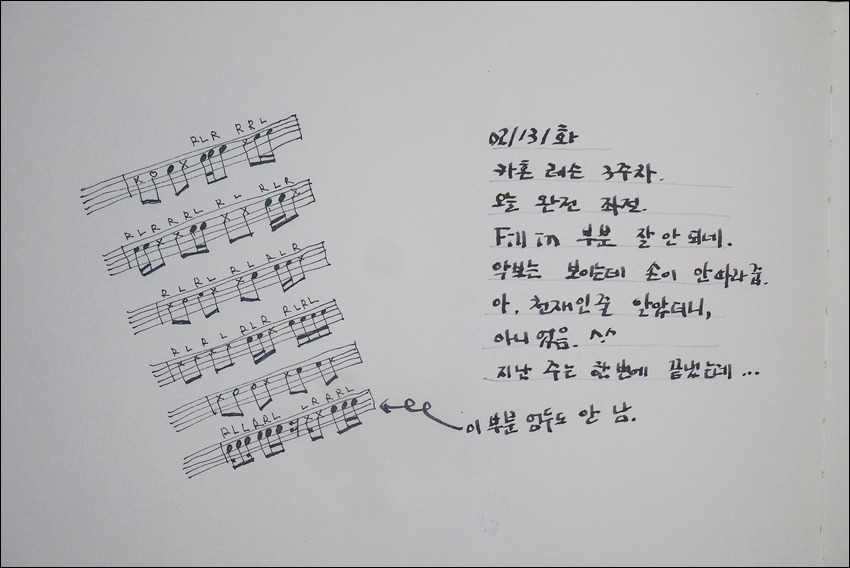 RLR RRL
RLRRRL RL RLR
RLRL RL RLR
RLRL RLR RLRL
RLLRRL LRRRL
02/13/화
카혼 레슨 3주차.
오늘 완전 좌절.
Fill in 부분 잘 안 되네.
악보는 보이는데 손이 안따라줌.
아, 천재인줄 알았더니,
아니 었음. ^^
지난 주는 한 번에 끝냈는데...
이 부분 엄두도 안 남.